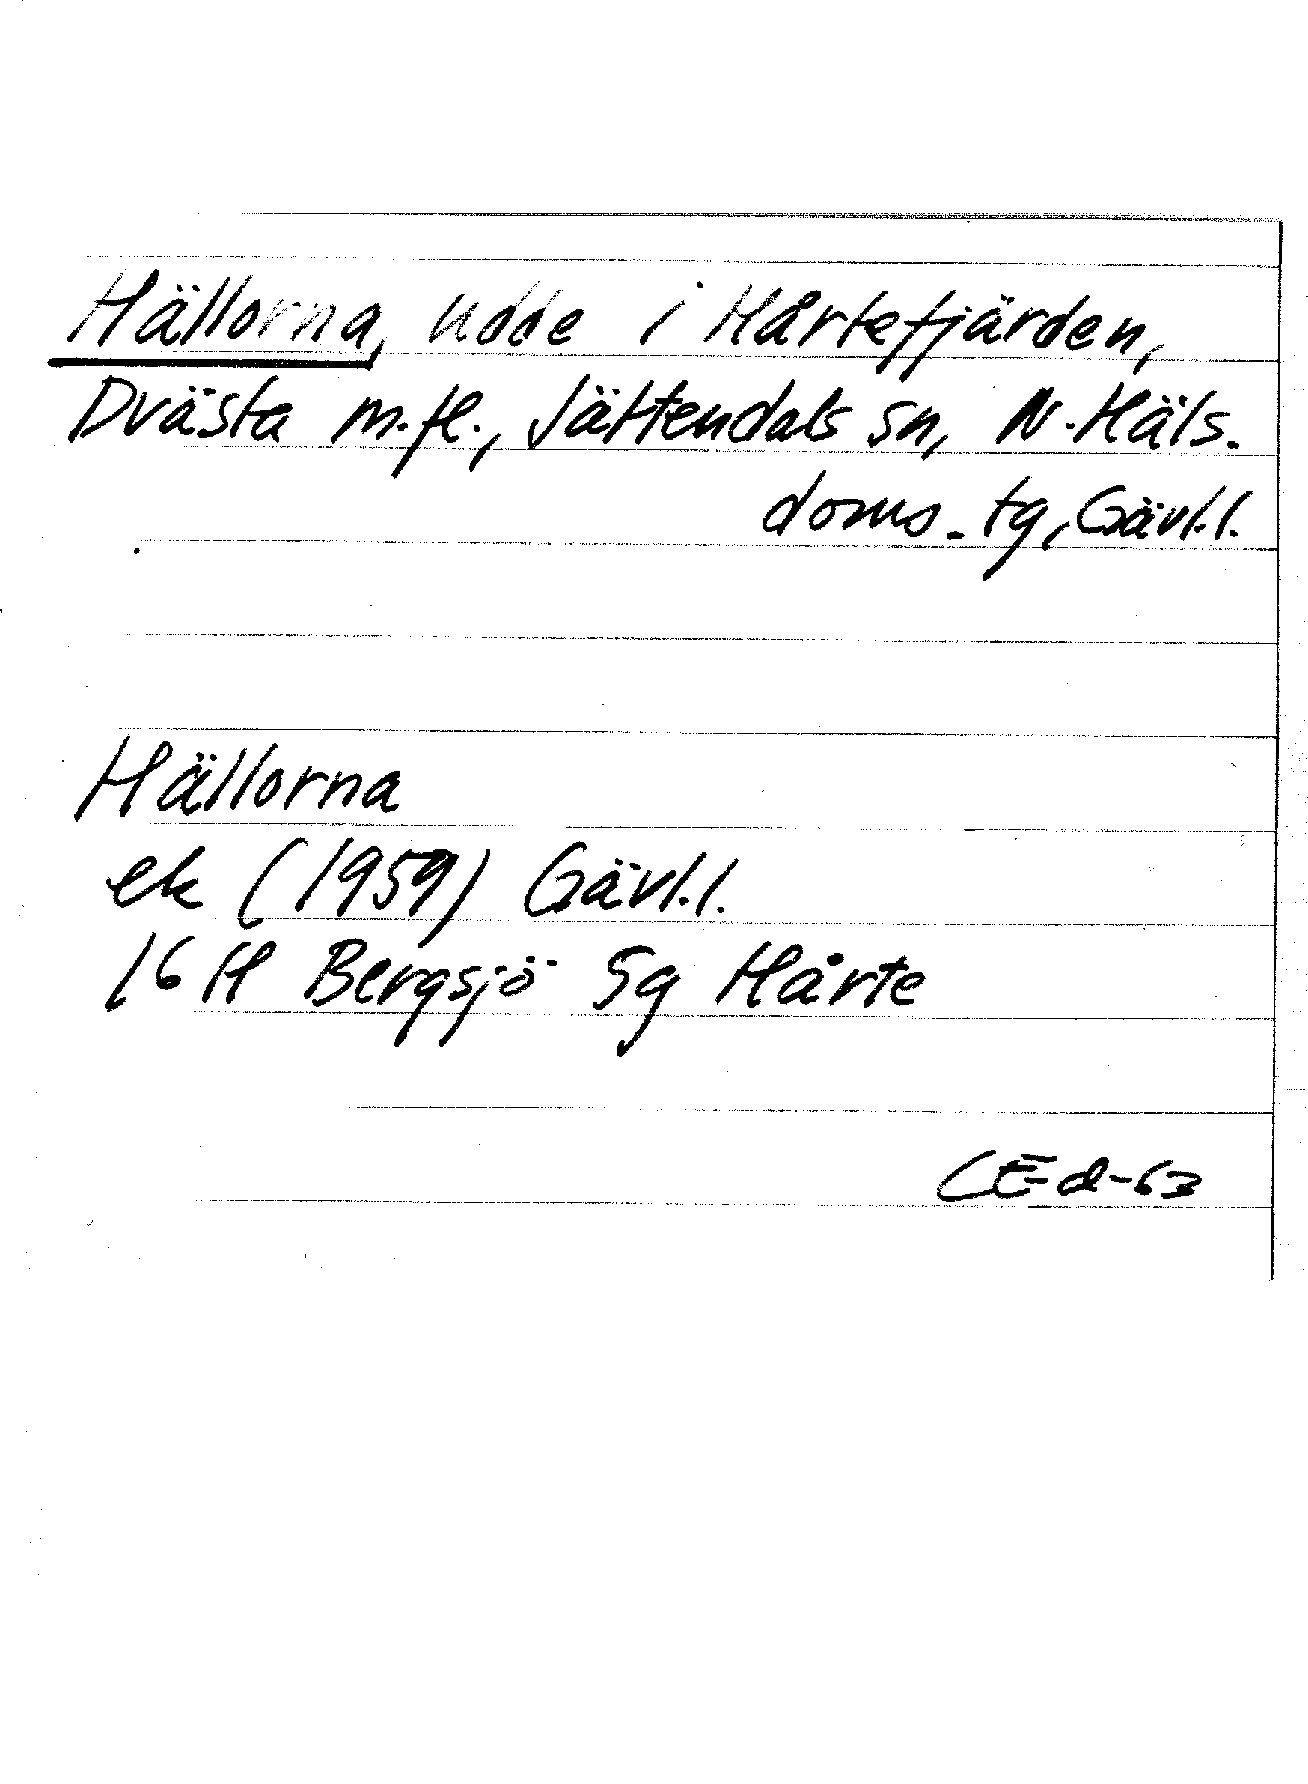 Hällorna, udde i Hårtefjärden,
Dvästa m.fl., Jättendals sn, N. Häls.
doms. tg, Gävl.l.
Hällorna
ek (1959) Gävl.l.
16 H Bergsjö 5g Hårte
CEd-63